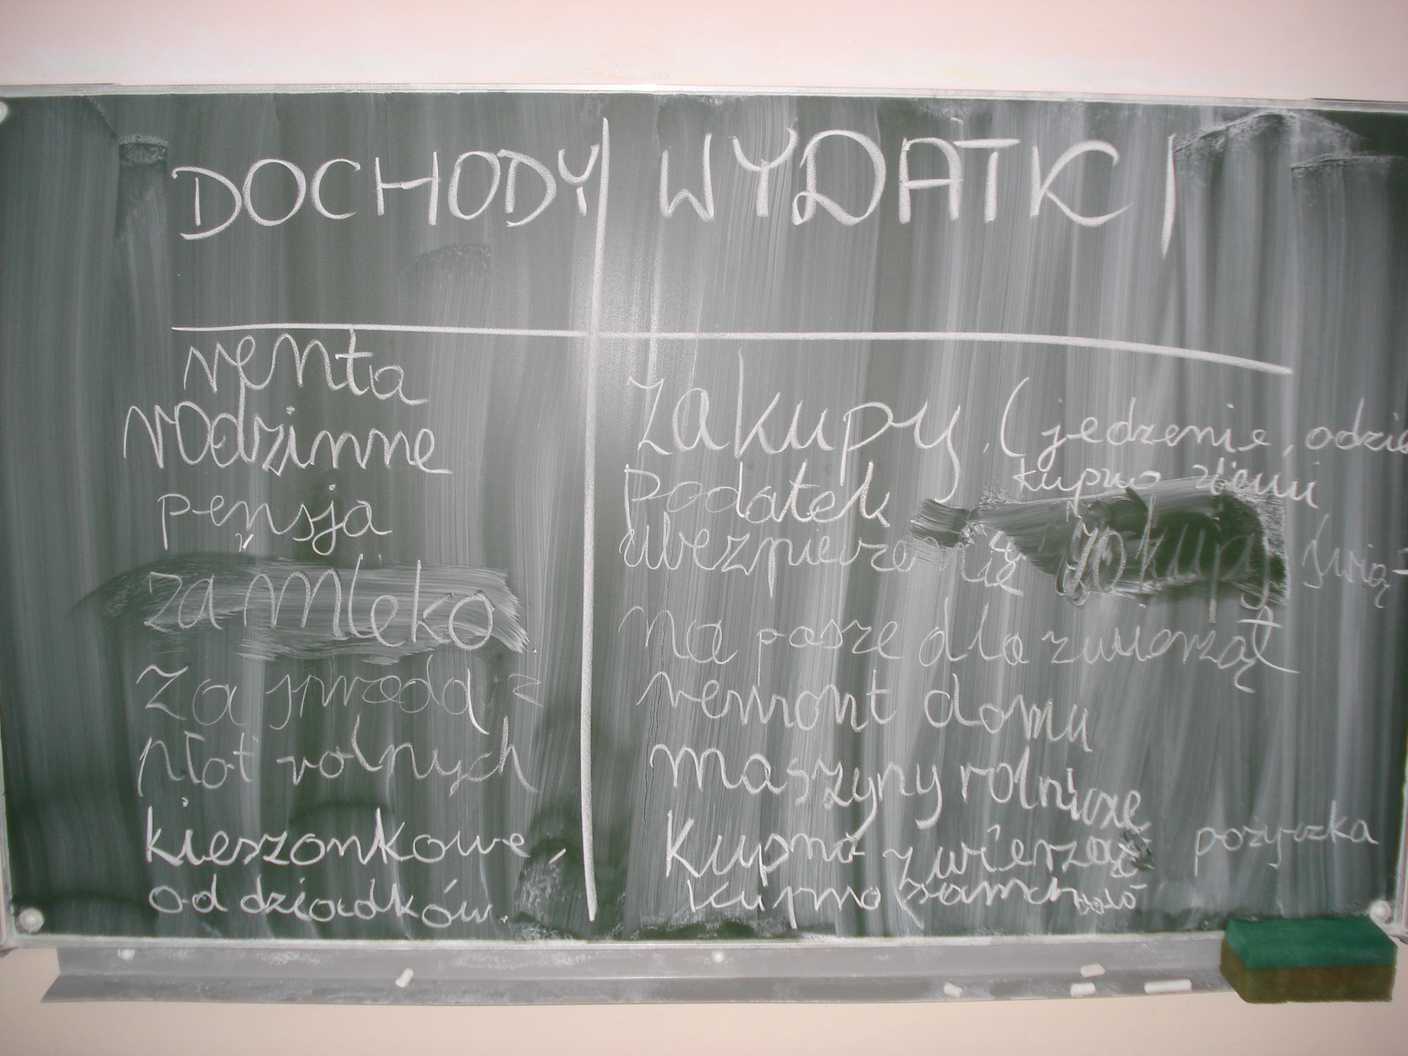 DOCHODY WYDATKI
renta
rodzinne
pensja
za mleko
Za sprzedaż
płot rolnych
kieszonkowe,
od dziadków.
zakupy, (jedzenie, odzie
kupno ziemi
Podatek
ubezpieczenie zakupy świą
na paszę dla zwierząt
remont domu
maszyny rolnicze
kupno zwierząt
pożyczka
kupno samochodó